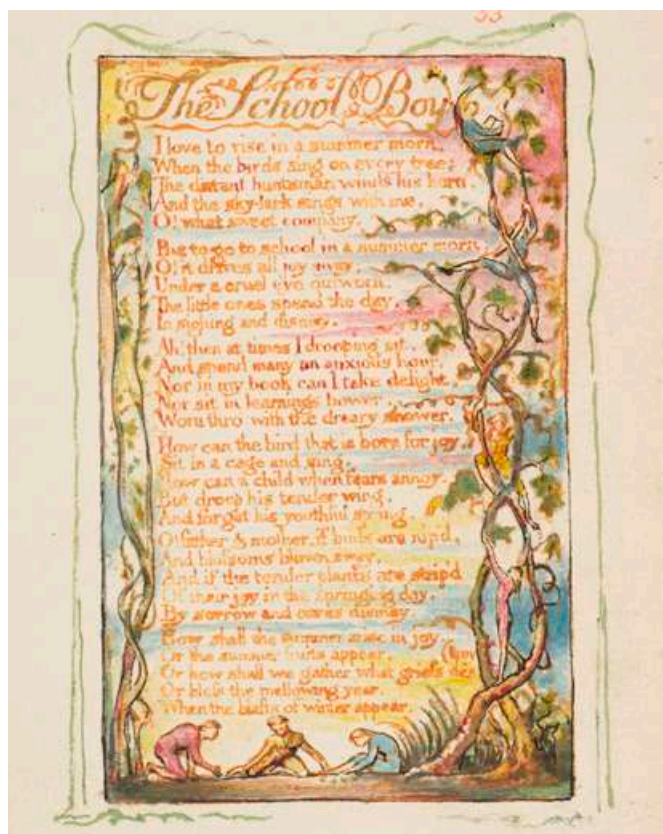 53
The School Boy
I love to rise in a summer morn,
When the birds sing on every tree;
The distant huntsman winds his horn,
And the sky-lark sings with me.
O! what sweet company.
But to go to school in a summer morn,
O! it drives all joy away;
Under a cruel eye outworn,
The little ones spend the day,
In sighing and dismay.
Ah! then at times I drooping sit,
And spend many an anxious hour,
Nor in my book can I take delight,
Nor sit in learnings bower,
Worn thro with the dreary shower.
How can the bird that is born for joy,
Sit in a cage and sing.
How can a child when fears annoy,
But droop his tender wing,
And forget his youthful spring.
O! father & mother, if buds are nip'd,
And blossoms blown away,
And if the tender plants are strip'd
Of their joy in the springing day,
By sorrow and cares dismay,
How shall the summer arise in joy
Or the summer fruits appear, (troy
Or how shall we gather what griefs des
Or bless the mellowing year,
When the blasts of winter appear.